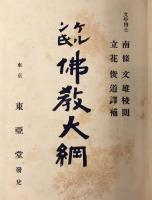 文学博士 南條文雄校閲
立花俊道譯補
ケルン氏
佛教大綱
東京 東亞堂 發兌